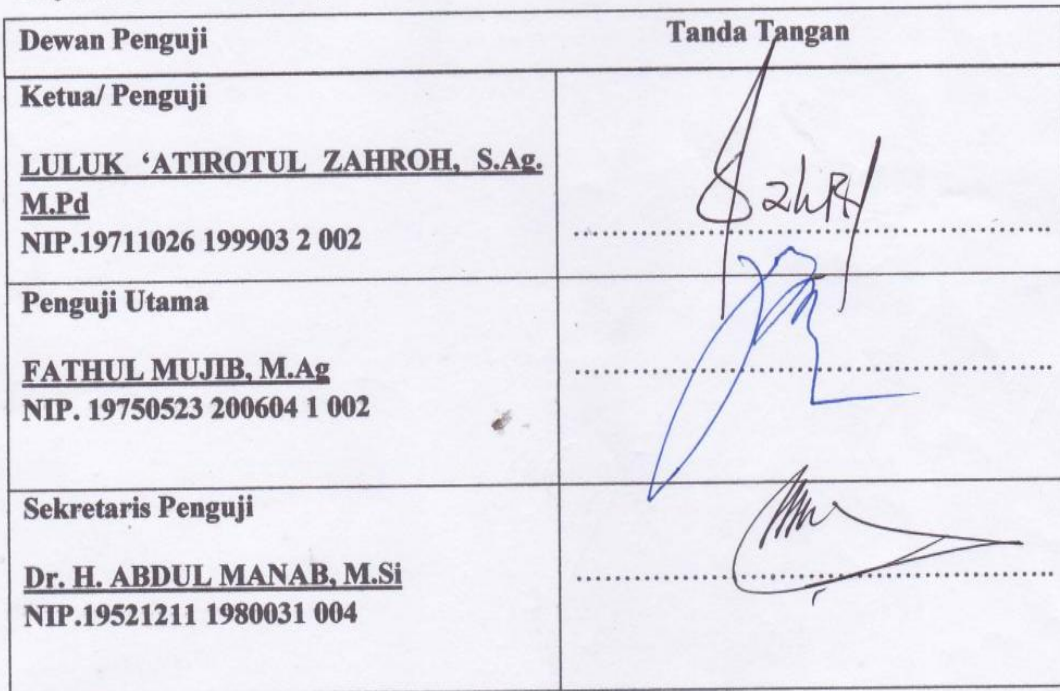 Dewan Penguji Tanda Tangan
Ketua/ Penguji
LULUK ‘ATIROTUL ZAHROH, S.Ag.
M.Pd
NIP.19711026 199903 2 002
Penguji Utama
FATHUL MUJIB, M.Ag
NIP. 19750523 200604 1 002
Sekretaris Penguji
Dr. H. ABDUL MANAB, M.Si
NIP.19521211 1980031 004